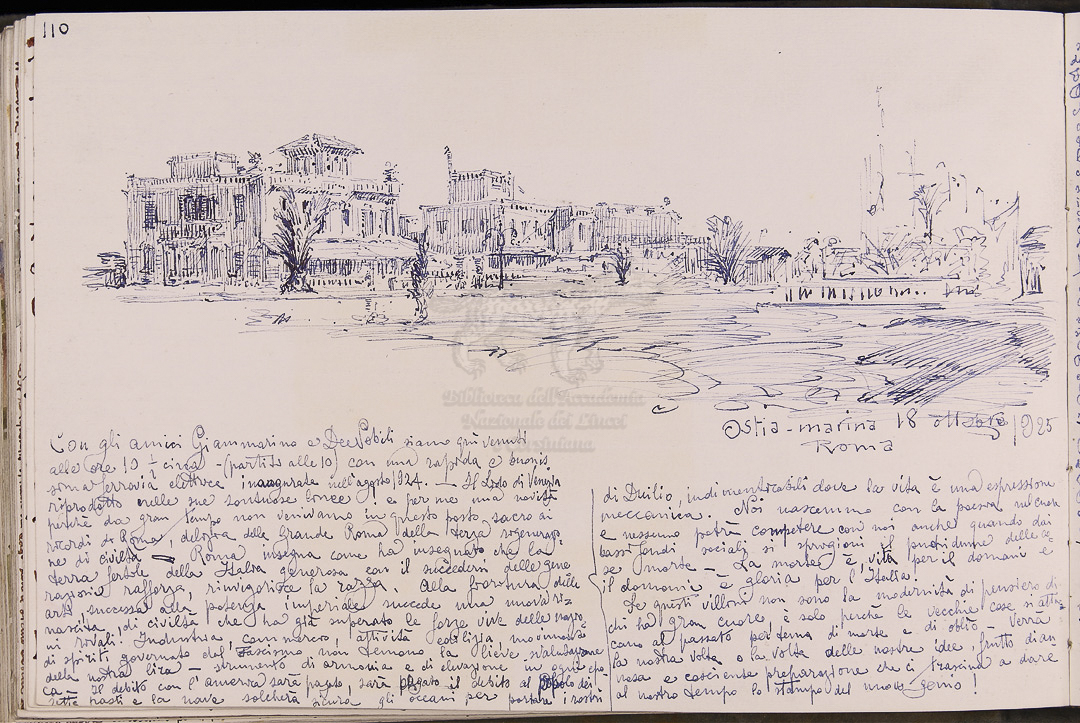 110
Biblioteca dell'Accademia
Nazionale dei Lincei
Corsiniana
Ostia-marina 18 ottobre 1925
Roma
Con gli amici Giammarino e De Nobili siamo qui venuti
alle ore 10 ½ circa - (partiti alle 10) con una rapida e buonis
sima ferrovia elettrica inaugurata nell'agosto 1924. - Il Lido di Venezia
riprodotto nelle sue sontuose linee! e per me una novità
perché da gran tempo non venivamo in questo posto sacro ai
ricordi di Roma, della Grande Roma della terza rigenerazio-
ne di civiltà. Roma insegna come ha insegnato che la
terra fertile della Italia generosa con il succedersi delle gene
razioni rafforza, rinvigorisce la razza. Alla fioritura delle
arti successa alla potenza imperiale succede una nuova ri-
nascita di civiltà che ha già superato le forze vive delle nazio-
ni rivali! Industria, commercio, attività edilizia, movimenti
di spiriti governati dal Fascismo non temono la lieve svalutazione
della nostra lira - strumento di armonia e di elevazione in ogni epo
ca. Il debito con l'america sarà pagato, sarà pagato il debito al popolo dei
setta nasti e la nave solcherà sicura gli oceani per portare i rostri
di Duilio, indimenticabili dove la vita è una espressione
meccanica. Noi nascemmo con la poesia nel cuore
e nessuno potrà competere con noi anche quando dai
bassi fondi sociali si sprigioni il putridume delle co-
se morte - La morte è vita per il domani e
il domani è gloria per l'Italia.
Se questi villini non sono la modernità di pensiero di
chi ha gran cuore, è solo perché le vecchie cose si attac
cano al passato per tema di morte e di oblio - Verrà
la nostra volta o la volta delle nostre idee, frutto di an
nosa e cosciente preparazione che ci trascina a dare
al nostro tempo lo stampo del nuovo genio!